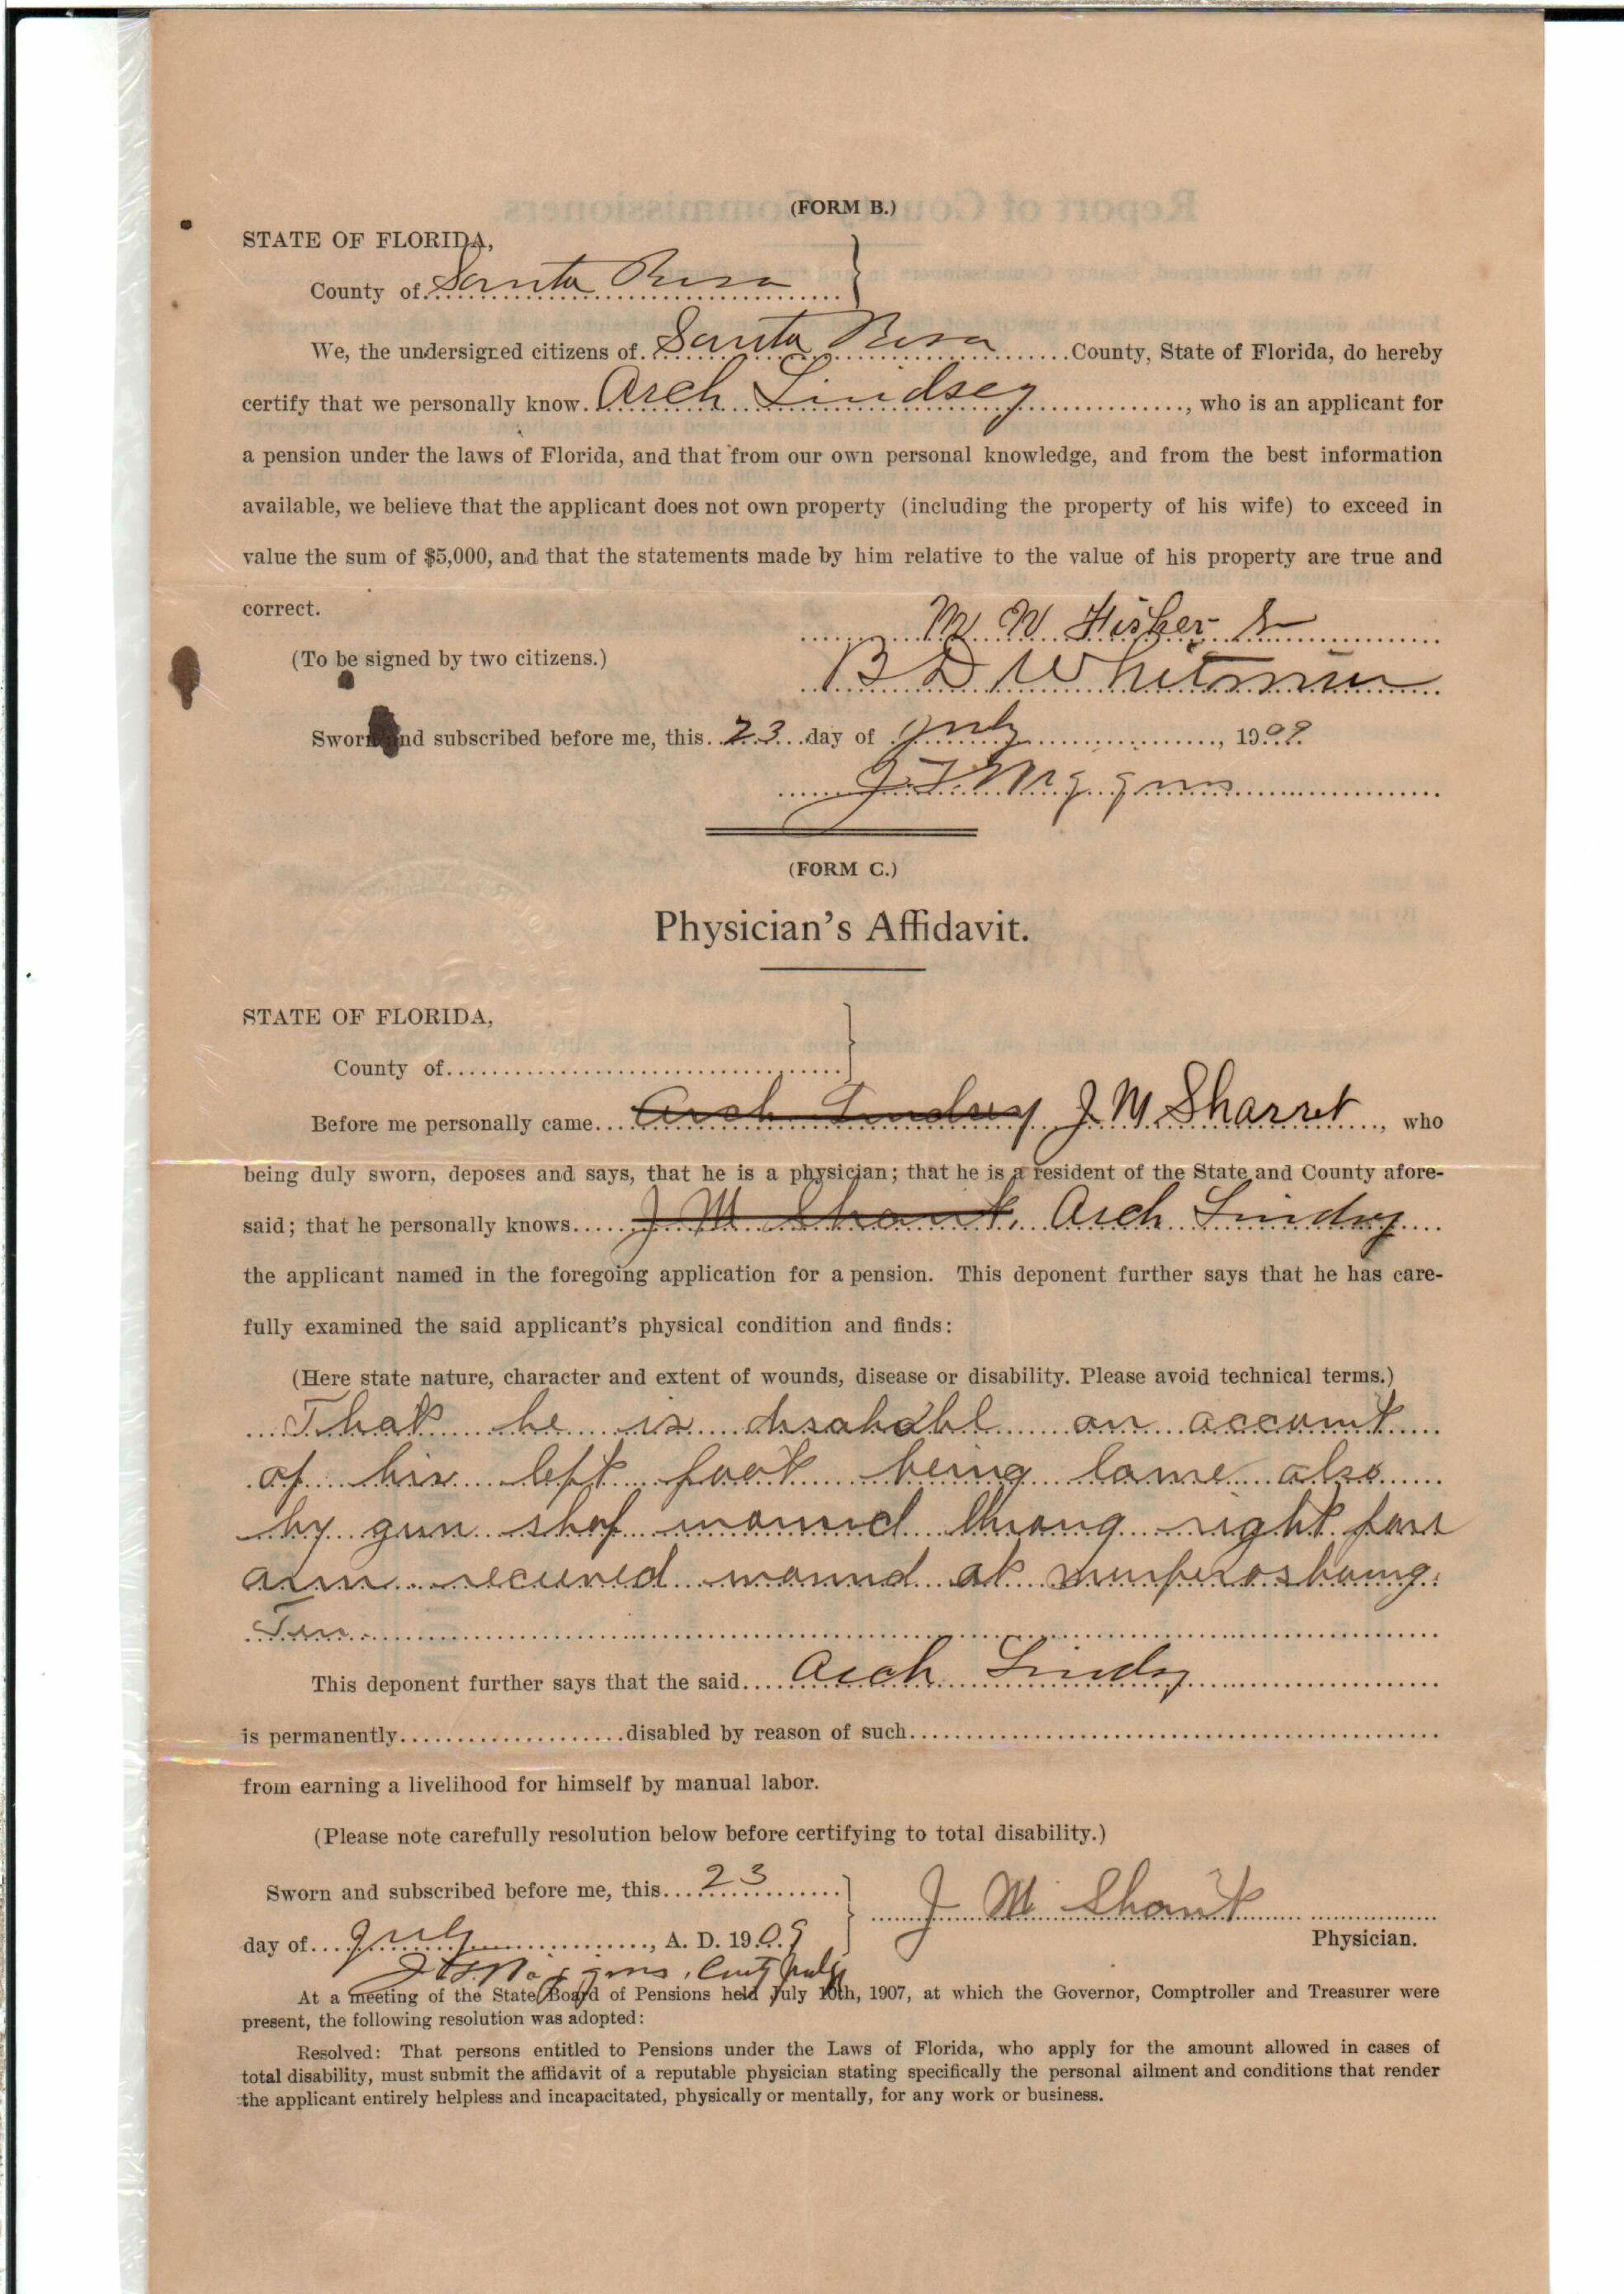 (FORM B.)
STATE OF FLORIDA,
County of Santa Rosa
We, the undersigned citizens of Santa Rosa County, State of Florida, do hereby
certify that we personally know Arch Lindsey, who is an applicant for
a pension under the laws of Florida, and that from our own personal knowledge, and from the best information
available, we believe that the applicant does not own property (including the property of his wife) to exceed in
value the sum of $5,000, and that the statements made by him relative to the value of his property are true and
correct.
M W Fisher Sr
(To be signed by two citizens.)
B D Whitmire
Sworn and subscribed before me, this 23 day of July, 1909.
(FORM C.)
Physician's Affidavit.
STATE OF FLORIDA,
County of
Before me personally came Arch Lindsey J M Sharret, who
being duly sworn, deposes and says, that he is a physician; that he is a resident of the State and County afore-
said; that he personally knows J M Arch Lindsy
the applicant named in the foregoing application for a pension. This deponent further says that he has care-
fully examined the said applicant's physical condition and finds:
(Here state nature, character and extent of wounds, disease or disability. Please avoid technical terms.)
That he is on account
of his left foot being lame also
by gun shot wound right
arm wound at
This deponent further says that the said Arch Lindsy
is permanently disabled by reason of such
from earning a livelihood for himself by manual labor.
(Please note carefully resolution below before certifying to total disability.)
Sworn and subscribed before me, this 23
J M
day of July, A. D. 1909
Physician.
At a meeting of the State Board of Pensions held July 10th, 1907, at which the Governor, Comptroller and Treasurer were
present, the following resolution was adopted:
Resolved: That persons entitled to Pensions under the Laws of Florida, who apply for the amount allowed in cases of
total disability, must submit the affidavit of a reputable physician stating specifically the personal ailment and conditions that render
the applicant entirely helpless and incapacitated, physically or mentally, for any work or business.